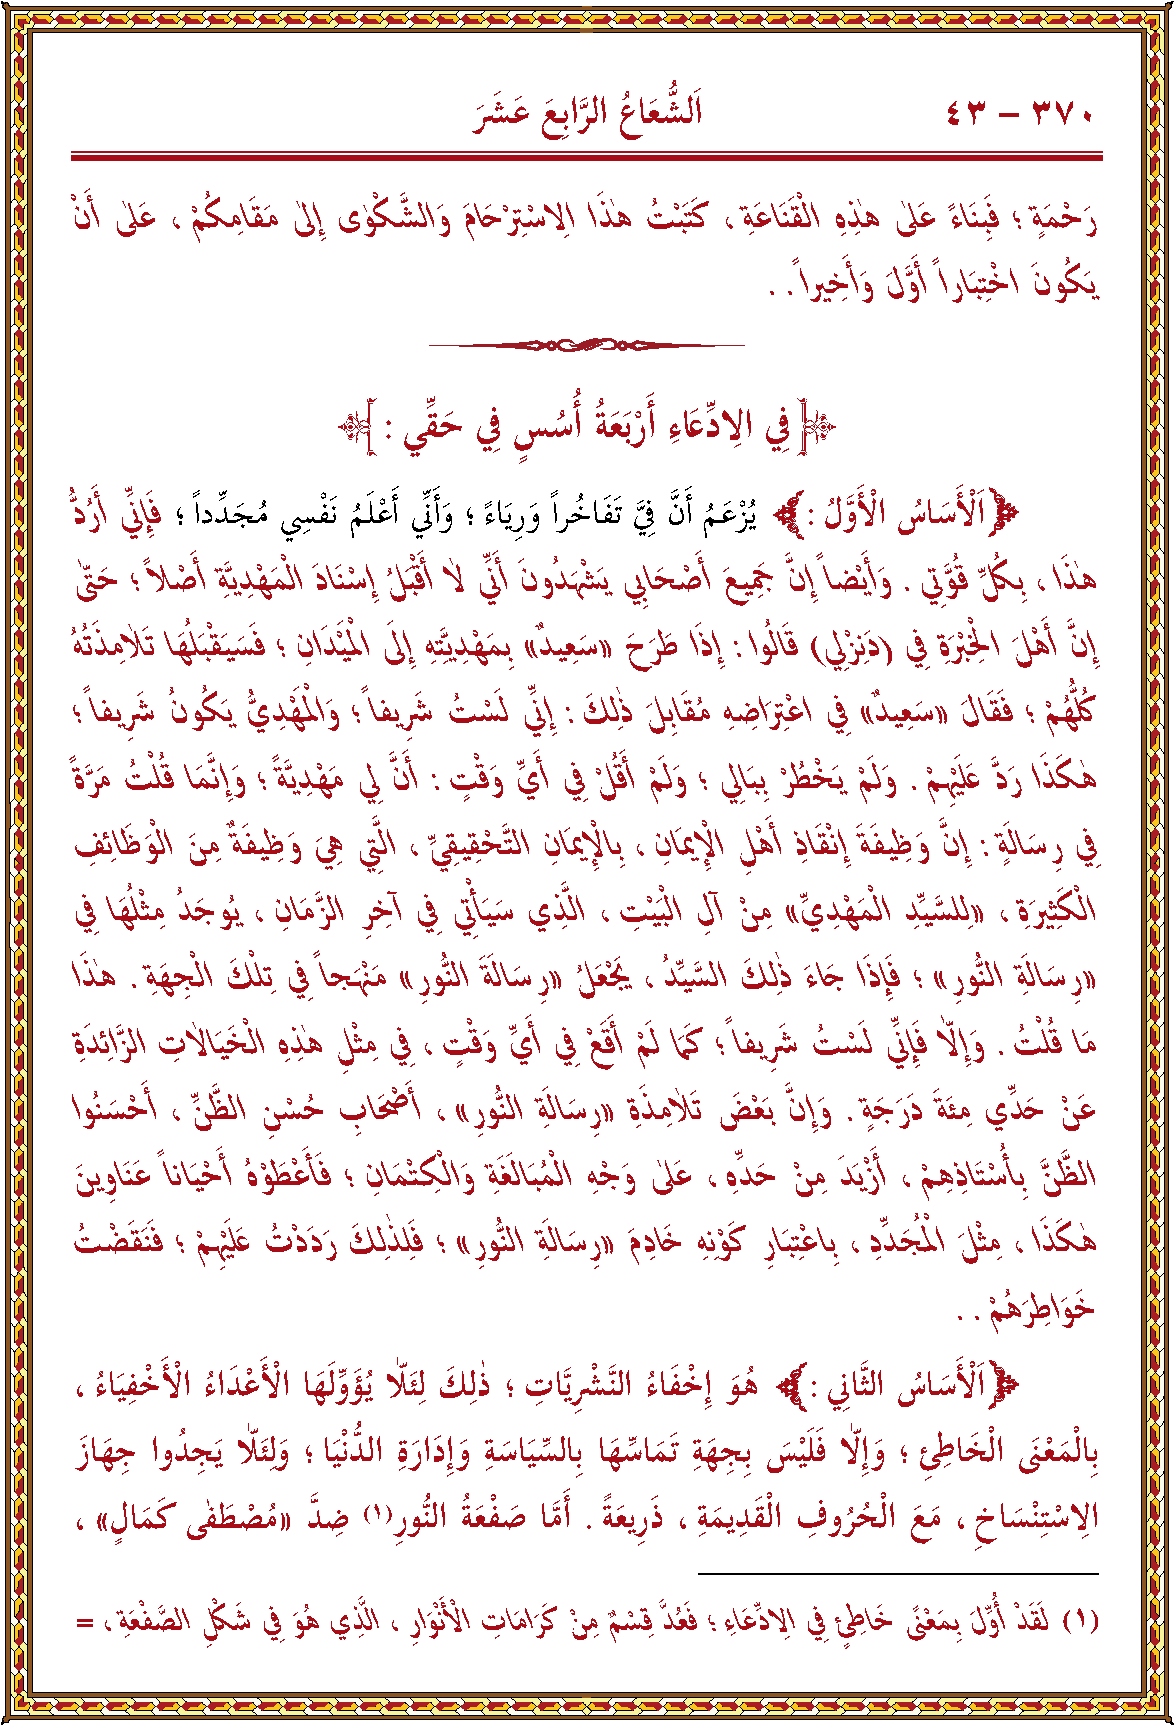 ٣٧٠ – ٤٣ اَلشُّعَاعُ الرَّابِعَ عَشَرَ
رَحْمَةٍ ؛ فَبِنَاءً عَلٰى هٰذِهِ الْقَنَاعَةِ ، كَتَبْتُ هٰذَا الِاسْتِرْحَامَ وَالشَّكْوٰى إِلٰى مَقَامِكُمْ ، عَلٰى أَنْ
يَكُونَ اخْتِبَاراً أَوَّلَ وَأَخِيراً . .
﴿فِي الِادِّعَاءِ أَرْبَعَةُ أُسُسٍ فِي حَقِّي :﴾
﴿اَلْأَسَاسُ الْأَوَّلُ :﴾ يُزْعَمُ أَنَّ فِيَّ تَفَاخُراً وَرِيَاءً ؛ وَأَنِّي أَعْلَمُ نَفْسِي مُجَدِّداً ؛ فَإِنِّي أَرُدُّ
هٰذَا ، بِكُلِّ قُوَّتِي . وَأَيْضاً إِنَّ جَمِيعَ أَصْحَابِي يَشْهَدُونَ أَنِّي لَا أَقْبَلُ إِسْنَادَ الْمَهْدِيَّةِ أَصْلاً ؛ حَتّٰى
إِنَّ أَهْلَ الْخِبْرَةِ فِي (دَنِزْلِي) قَالُوا : إِذَا طَرَحَ «سَعِيدٌ» بِمَهْدِيَّتِهِ إِلَى الْمَيْدَانِ ؛ فَسَيَقْبَلُهَا تَلَامِذَتُهُ
كُلُّهُمْ ؛ فَقَالَ «سَعِيدٌ» فِي اعْتِرَاضِهِ مُقَابِلَ ذٰلِكَ : إِنِّي لَسْتُ شَرِيفاً ؛ وَالْمَهْدِيُّ يَكُونُ شَرِيفاً ؛
هٰكَذَا رَدَّ عَلَيْهِمْ . وَلَمْ يَخْطُرْ بِبَالِي ؛ وَلَمْ أَقُلْ فِي أَيِّ وَقْتٍ : أَنَّ لِي مَهْدِيَّةً ؛ وَإِنَّمَا قُلْتُ مَرَّةً
فِي رِسَالَةٍ : إِنَّ وَظِيفَةَ إِنْقَاذِ أَهْلِ الْإِيمَانِ ، بِالْإِيمَانِ التَّحْقِيقِيِّ ، الَّتِي هِيَ وَظِيفَةٌ مِنَ الْوَظَائِفِ
الْكَثِيرَةِ ، «لِلسَّيِّدِ الْمَهْدِيِّ» مِنْ آلِ الْبَيْتِ ، الَّذِي سَيَأْتِي فِي آخِرِ الزَّمَانِ ، يُوجَدُ مِثْلُهَا فِي
«رِسَالَةِ النُّورِ» ؛ فَإِذَا جَاءَ ذٰلِكَ السَّيِّدُ ، يَجْعَلُ «رِسَالَةَ النُّورِ» مَنْهَجاً فِي تِلْكَ الْجِهَةِ . هٰذَا
مَا قُلْتُ . وَإِلَّا فَإِنِّي لَسْتُ شَرِيفاً ؛ كَمَا لَمْ أَقَعْ فِي أَيِّ وَقْتٍ ، فِي مِثْلِ هٰذِهِ الْخَيَالَاتِ الزَّائِدَةِ
عَنْ حَدِّي مِئَةَ دَرَجَةٍ . وَإِنَّ بَعْضَ تَلَامِذَةِ «رِسَالَةِ النُّورِ» ، أَصْحَابِ حُسْنِ الظَّنِّ ، أَحْسَنُوا
الظَّنَّ بِأُسْتَاذِهِمْ ، أَزْيَدَ مِنْ حَدِّهِ ، عَلٰى وَجْهِ الْمُبَالَغَةِ وَالْكِتْمَانِ ؛ فَأَعْطَوْهُ أَحْيَاناً عَنَاوِينَ
هٰكَذَا ، مِثْلَ الْمُجَدِّدِ ، بِاعْتِبَارِ كَوْنِهِ خَادِمَ «رِسَالَةِ النُّورِ» ؛ فَلِذٰلِكَ رَدَدْتُ عَلَيْهِمْ ؛ فَنَقَضْتُ
خَوَاطِرَهُمْ . .
﴿اَلْأَسَاسُ الثَّانِي :﴾ هُوَ إِخْفَاءُ النَّشْرِيَّاتِ ؛ ذٰلِكَ لِئَلَّا يُؤَوِّلَهَا الْأَعْدَاءُ الْأَخْفِيَاءُ ،
بِالْمَعْنَى الْخَاطِئِ ؛ وَإِلَّا فَلَيْسَ بِجِهَةِ تَمَاسِّهَا بِالسِّيَاسَةِ وَإِدَارَةِ الدُّنْيَا ؛ وَلِئَلَّا يَجِدُوا جِهَازَ
الِاسْتِنْسَاخِ ، مَعَ الْحُرُوفِ الْقَدِيمَةِ ، ذَرِيعَةً . أَمَّا صَفْعَةُ النُّورِ(١) ضِدَّ «مُصْطَفٰى كَمَالٍ» ،
(١) لَقَدْ أُوِّلَ بِمَعْنًى خَاطِئٍ فِي الِادِّعَاءِ ؛ فَعُدَّ قِسْمٌ مِنْ كَرَامَاتِ الْأَنْوَارِ ، الَّذِي هُوَ فِي شَكْلِ الصَّفْعَةِ ، =